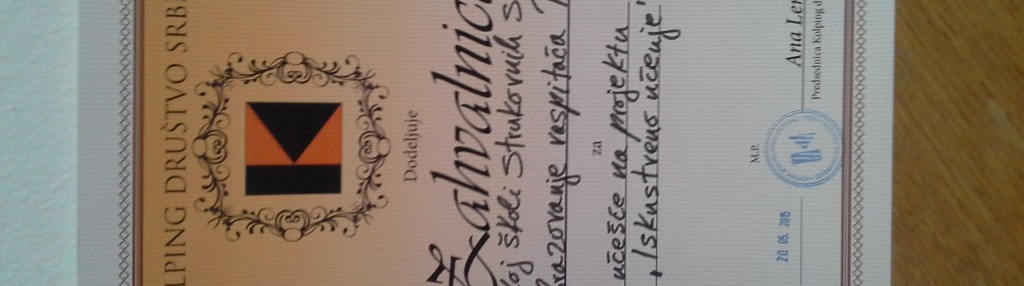 LPING DRUŠTVO SRB
Dodeljuje
Zahvalnic
oj školi strukovnih s
brazovanje vaspitača
za
učešće na projektu
„Iskustveno učenje"
M.P.
20. 05. 2015
Ana Ler
Predsednica Kolping d